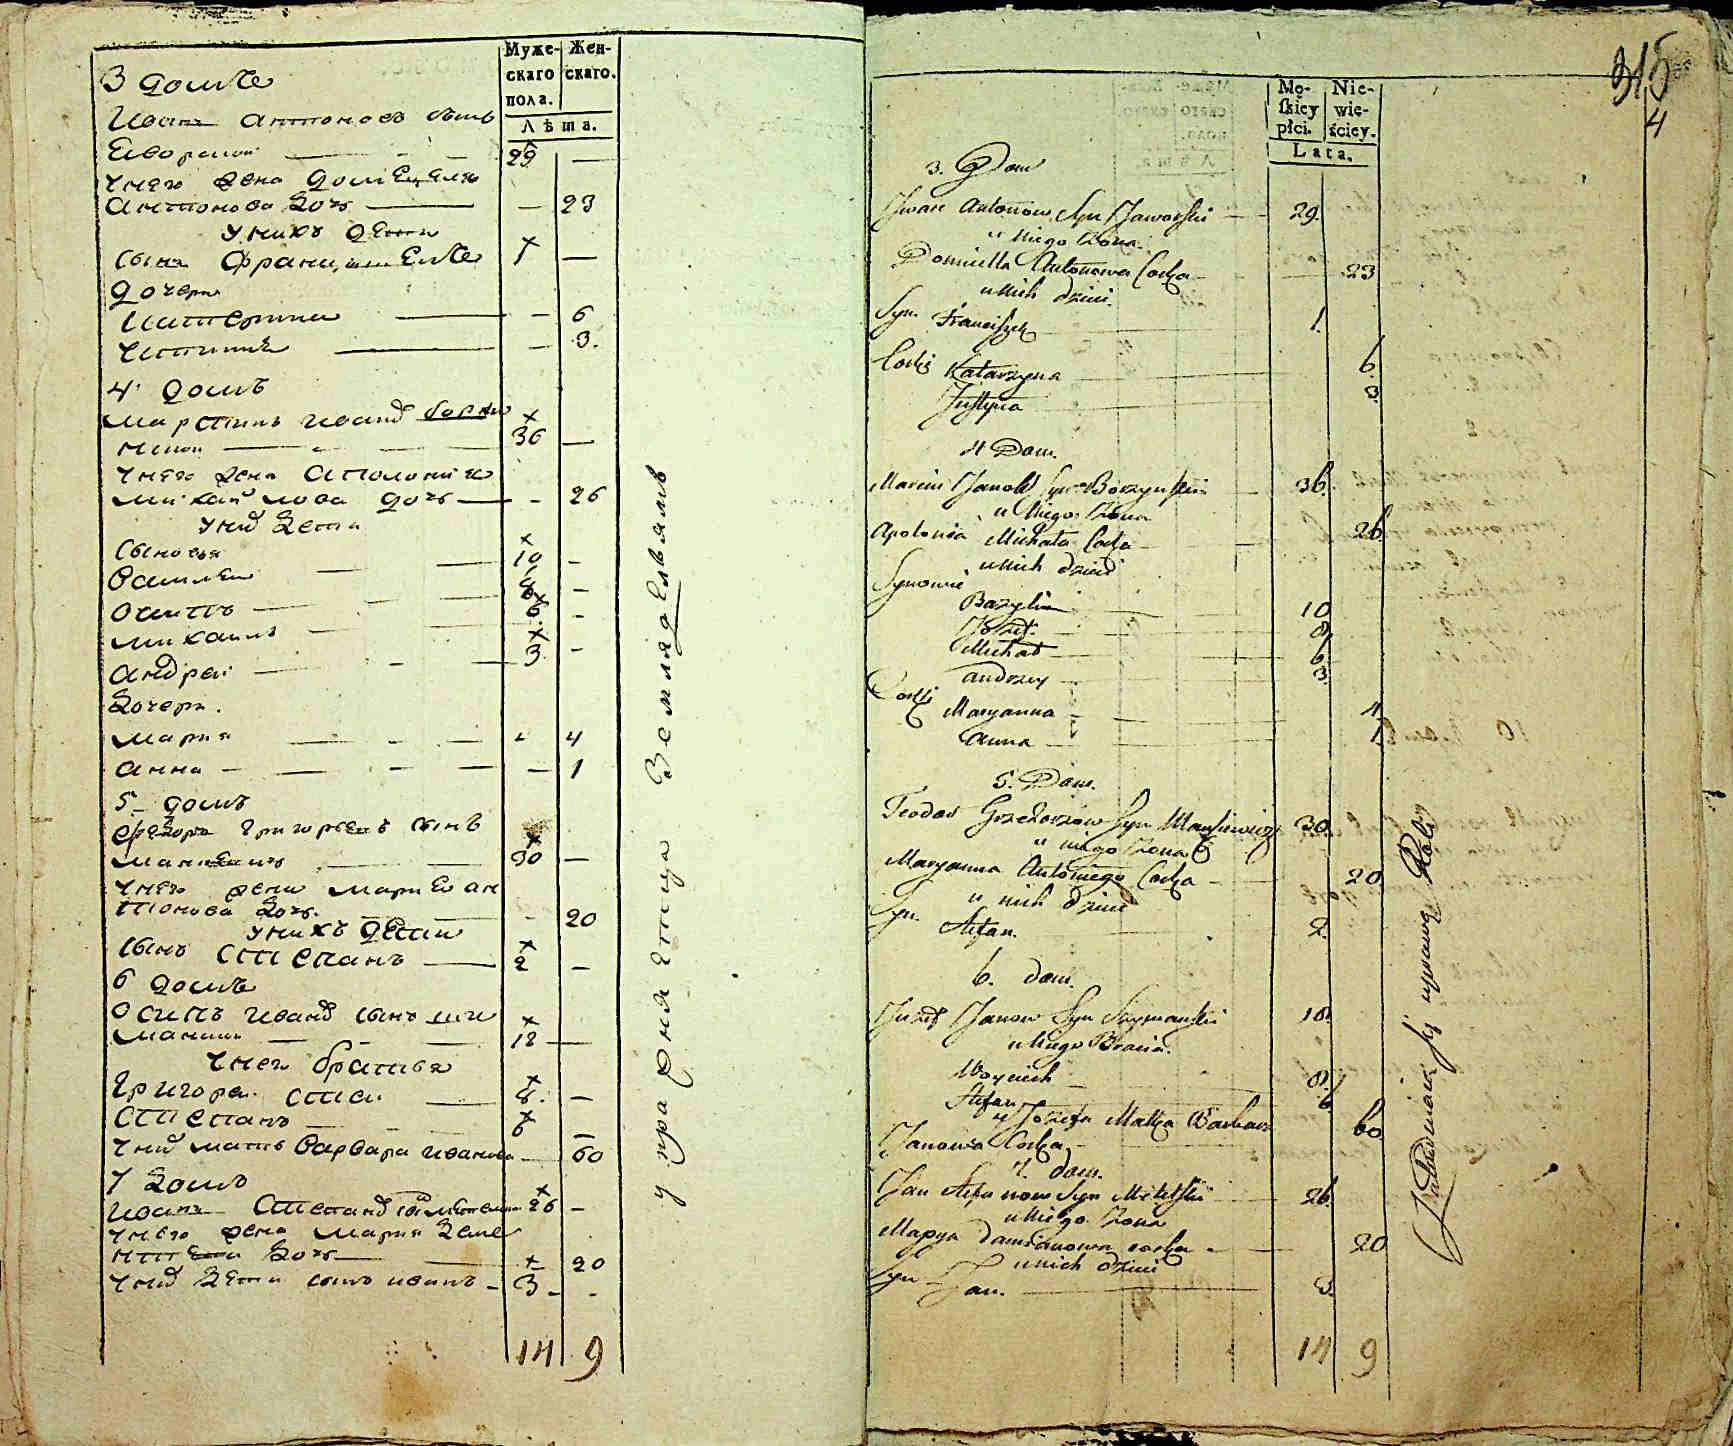 Муже-
скаго
пола.
Жен-
скаго.
Лѣта.
3 домъ
Иванъ Антоновъ сынъ
Яворский 29 —
у него жена Домицеля
Антонова дочь — 23
у нихъ дети
сынъ Францишекъ 1 —
дочери
Катерина — 6
Юстина — 3.
4 домъ
Мартинъ Иванов Боржи
нский 36 —
у него жена Аполония
Михайлова дочь — 26
у них дети
сыновья
Василей 10 —
Осипъ 8 —
Михаилъ 6 —
Андрей 3 —
дочери.
Мария — 4
Анна — 1
5 домъ
Феодоръ Григорьевъ сынъ
30 —
у него жена Мария Ан
тонова дочь. — 20
у нихъ дети
сынъ Степанъ 2 —
6 домъ
Осипъ Иванов сынъ Ши
манский 18 —
у него братья
Григорей 8. —
Степанъ 6 —
у них мать Варвара Иванова — 60
7 домъ
Иванъ Степанов сын 26 —
у него жена Мария Деме
дочь — 20
у них дети сынъ Иванъ 3 —
14 9
упражняется земляделиямъ
315
4
Mę-
skiey
płci.
Nie-
wie-
sciey.
Lata.
3. Dom
Jwan Antonow Syn Jaworski — 29.
u niego Żona.
Domicella Antonowa Corka — 23
u nich dzieci.
Syn Franciszek 1.
Corki Katarzyna 6.
Justyna 3.
4 Dom.
Marcin Janow Syn Borzynski 36.
u niego Żona
Apolonia Michała Corka 26
u nich dzieci
Synowie
Bazyli 10
Jozef. 8
Michał 6.
Andrzey 3.
Corki
Maryanna 4
Anna 1.
5. Dom.
Teodor Grzehorzow Syn 30.
u niego Żona
Maryanna Antoniego Corka 20.
u nich dzieci
Syn. Stefan. 2.
6. dom.
Juzef Janow Syn Szymanski 18.
u niego Bracia.
8.
Stefan 6
u Jozefa Matka Barbara
Janowa Corka 60
7. dom.
Jan Stefanow Syn 26.
u niego Żona
Марya Damianowa corka 20
u nich dzieci
Syn Jan. 3.
14 9
Zatrudniaią się uprawą Roli